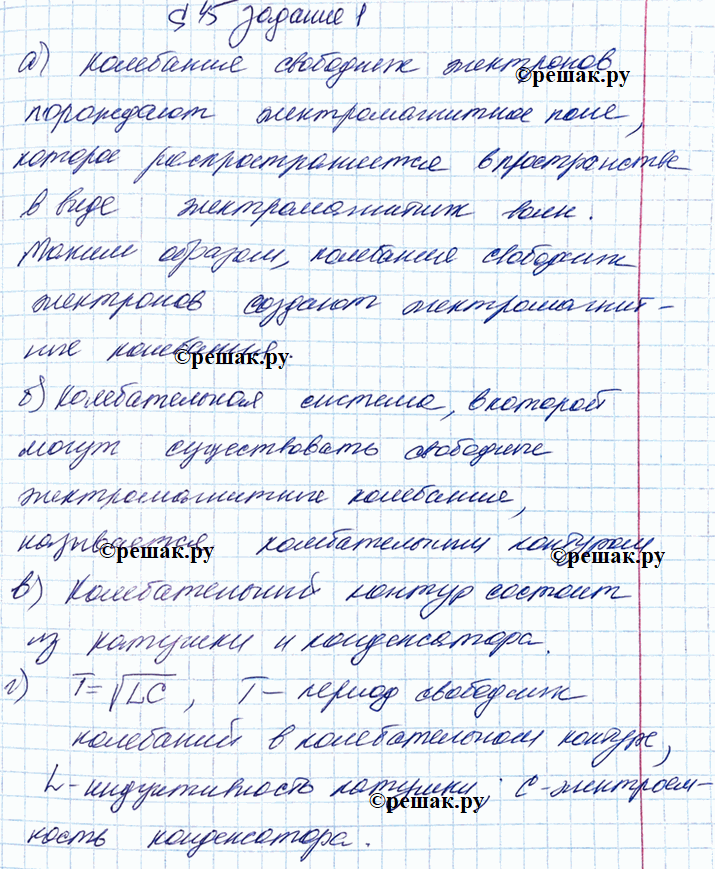 § 45 Задание 1
а) Колебания свободных электронов
©решак.ру
порождают электромагнитное поле,
которое распространяется в пространстве
в виде электромагнитных волн.
Таким образом, колебания свободных
электронов создают электромагнит-
ные колебания.
©решак.ру
б) Колебательная система, в которой
могут существовать свободные
электромагнитные колебания,
называется колебательным контуром
©решак.ру ©решак.ру
в) Колебательный контур состоит
из катушки и конденсатора.
г) T=√LC, T – период свободных
колебаний в колебательном контуре,
L – индуктивность катушки; C – электроем-
©решак.ру
кость конденсатора.